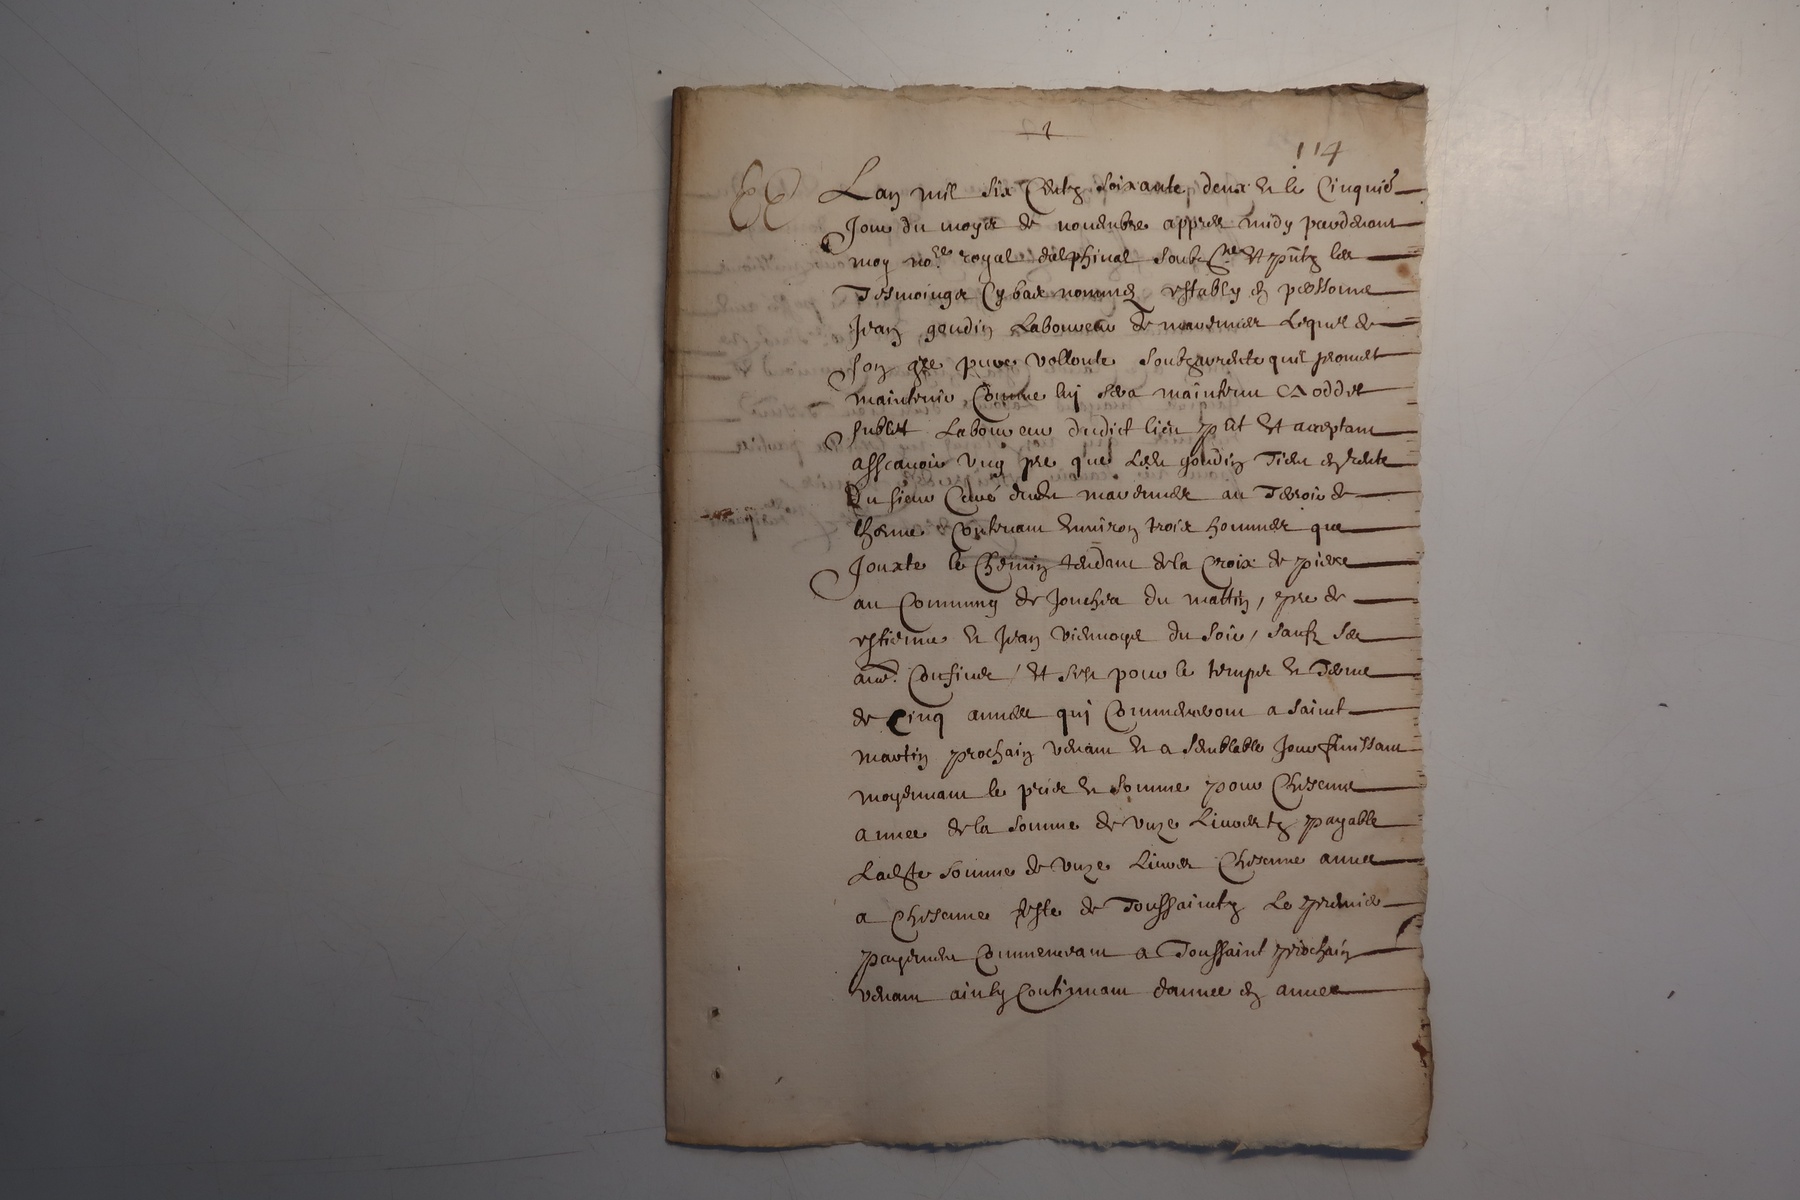 114
Lan mil six Centz soixante deux & le Cinquie
Jour du moys de novembre appres midy pardevant
moy no.re royal dalphinal soubz.ne et pntz les
Tesmoings Cy bas nommez estably en personne
Jean gondin Laboureur de mavernier Lequel de
son gre pure vollonte soubzarrente quil promet
maintenir Comme luy sera maintenu A oddet
sublet Laboureur dudict lieu pnt et acceptant
asscavoir ung pre que Led gondin Tient en rente
Du sieur Curé dud mavernier au Terroir de
Contenant Environ trois hommes que
Jouxte le Chemin tendant de la Croix de pierre
au Commung de du mattin, pre de
estienne & Jean du soir, sauf ses
au. Confines / et sest pour le temps & Terme
de Cinq annees qui Commenceront a saint
martin prochain venant & a semblable Jour finissant
moyennant le pris & somme pour Chesenne
annee de la somme de unze Livres tz payable
Ladste somme de unze Livres Chesenne annee
a Chesenne feste de Toussaintz Le premier
payement Commencant a Toussaint prochain
venant ainsy Continuant dannee en annee